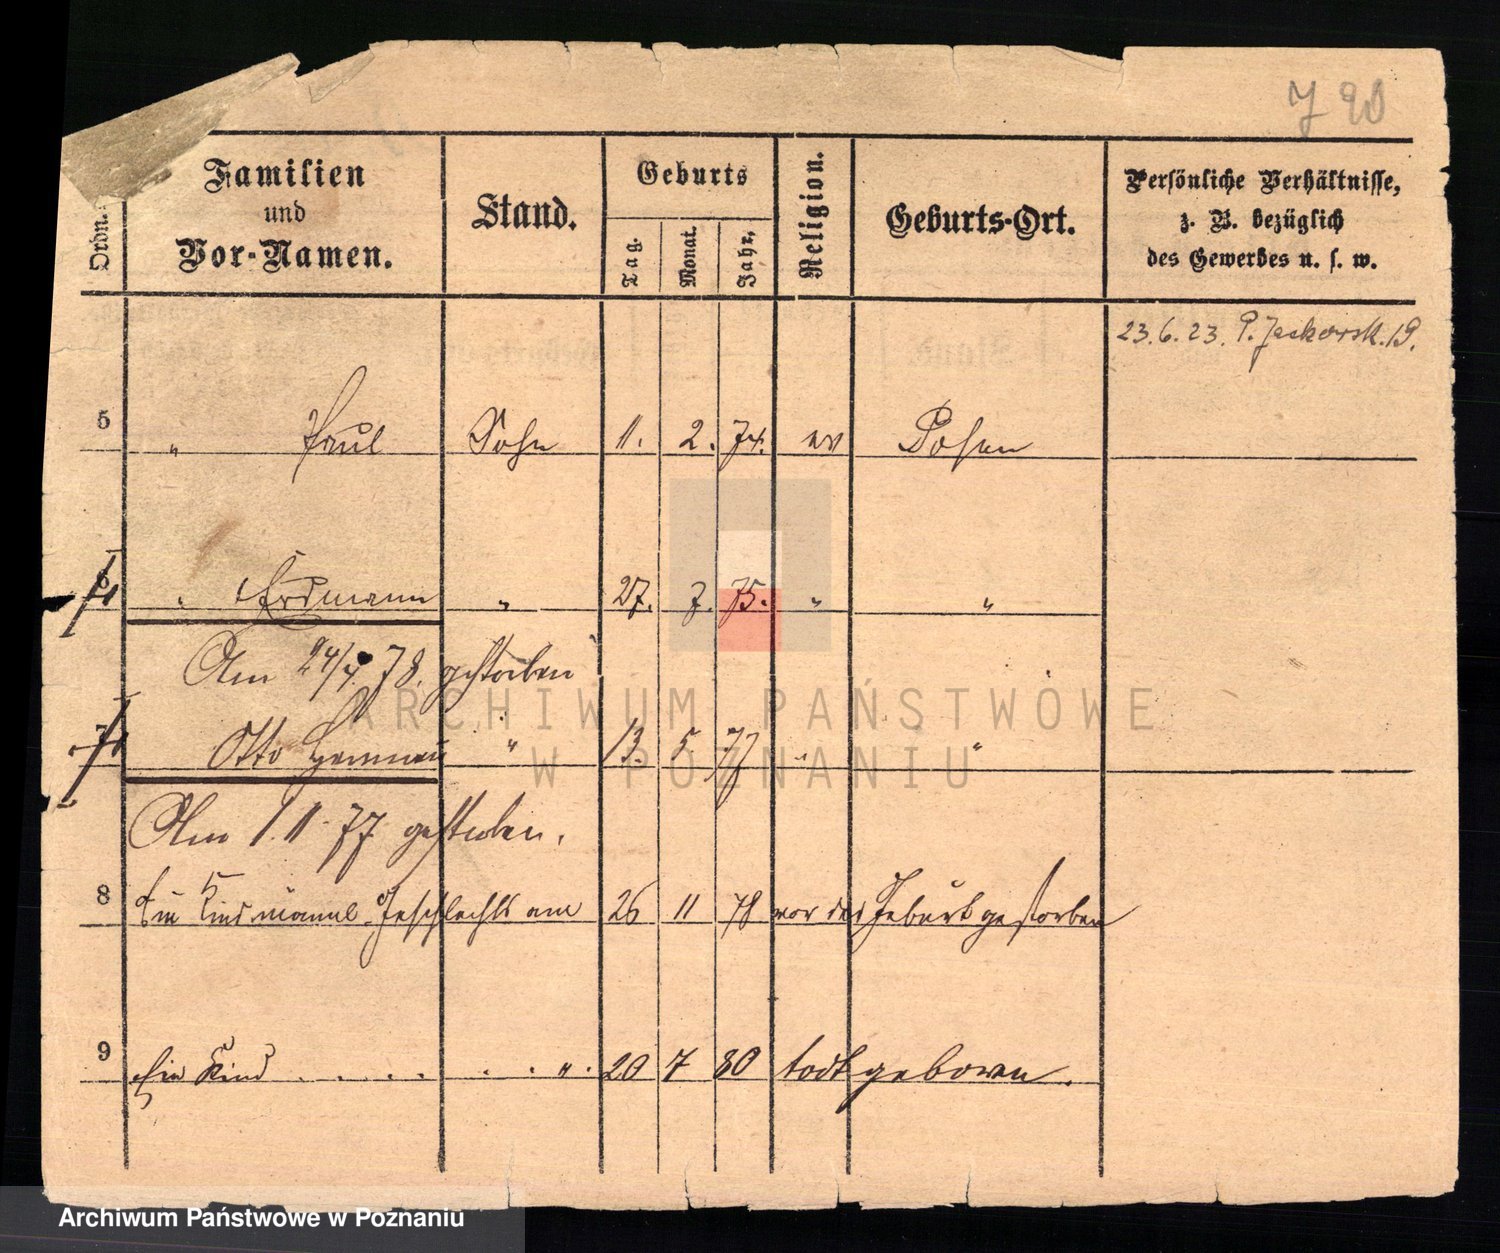 J 90
Ordn.
Familien
und
Vor-Namen.
Stand.
Geburts
Tag.
Monat.
Jahr.
Religion.
Geburts-Ort.
Persönliche Verhältnisse,
z. B. bezüglich
des Gewerbes u. s. w.
23.6.23. P. Jackowsk. 19.
5 " Paul Sohn 11. 2. 74. ev Posen
6 " Erdmann " 27. 7. 75. " "
Am 24/4. 78. gestorben
7 Otto Herman " 13. 5 77 " "
Am 1. 11. 77 gestorben.
8 Ein Kind männl. Geschlechts am 26 11 78 vor der Geburt gestorben
9 Ein Kind . . . . . . " . 20 7 80 todt geboren.
ARCHIWUM PAŃSTWOWE
W POZNANIU
Archiwum Państwowe w Poznaniu